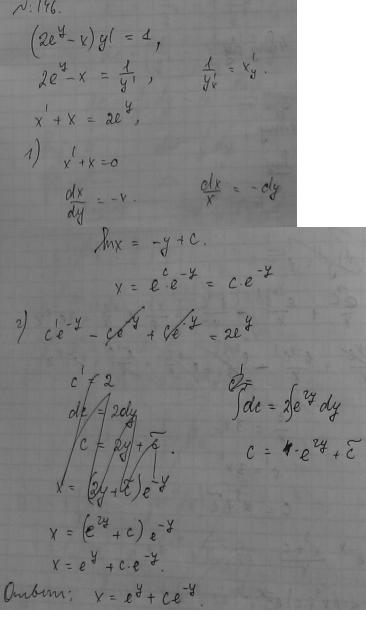 № 146.
(2e^y - x) y' = 1,
2e^y - x = 1/y' , 1/y'ₓ = x'_y.
x' + x = 2e^y,
1) x' + x = 0
dx/dy = -x. dx/x = -dy
ln x = -y + c.
x = e^c · e^-y = c · e^-y
2) c'e^-y - ce^-y + ce^-y = 2e^y
c' = 2
dc = 2dy ∫dc = 2∫e^2y dy
c = 2y + c̃. c = e^2y + c̃
x = (2y + c̃) e^-y
x = (e^2y + c) e^-y
x = e^y + c · e^-y.
Ответ: x = e^y + ce^-y.